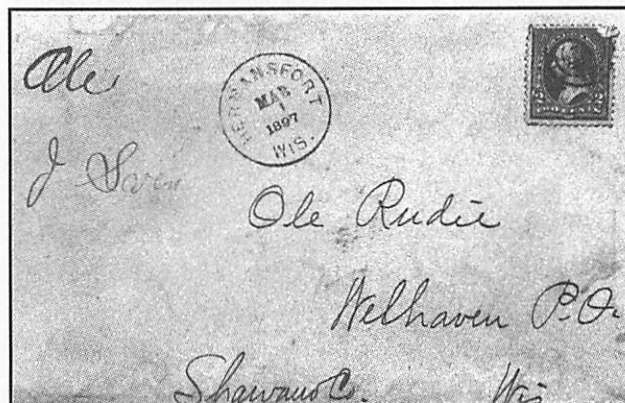 Ole
HERMANSFORT
MAR
1
1897
WIS.
J Sven
Ole Rudie
Welhaven P.O.
Shawano Co. Wis